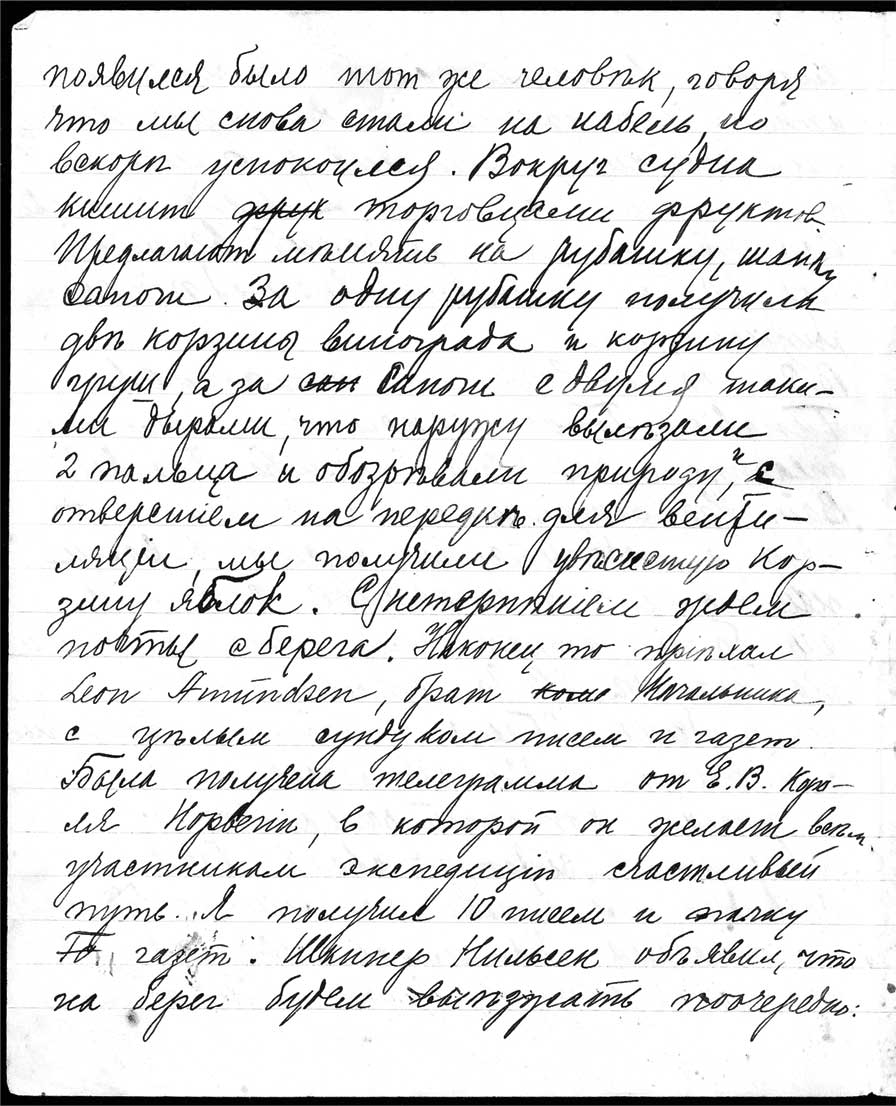 появился было тот же человѣк, говоря
что мы снова стали на кабель, но
вскорѣ успокоился. Вокруг судна
кишит фрук торговцами фруктов.
Предлагают мѣнять на рубашку, шапку
сапоги. За одну рубашку получили
двѣ корзины винограда и корзину
груш, а за сап сапоги с двумя таки-
ми дырами, что наружу вылѣзали
2 пальца и обозрѣвали природу, и с
отверстіем на передкѣ для венти-
ляціи, мы получили увѣсистую кор-
зину яблок. С нетерпѣніем ждем
почты с берега. Наконец то пріѣхал
Leon Amundsen, брат Начальника,
с цѣлым сундуком писем и газет.
Была получена телеграмма от Е.В. Коро-
ля Норвегіи, в которой он желает всѣм
участникам экспедиціи счастливый
путь. Я получил 10 писем и пачку
газет. Шкипер Нильсен объявил, что
на берег будем выѣзжать поочередно: